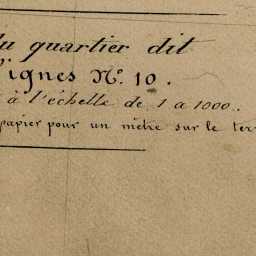 du quartier dit
Vignes N°. 10.
à l'échelle de 1 a 1000.
papier pour un mètre sur le terr